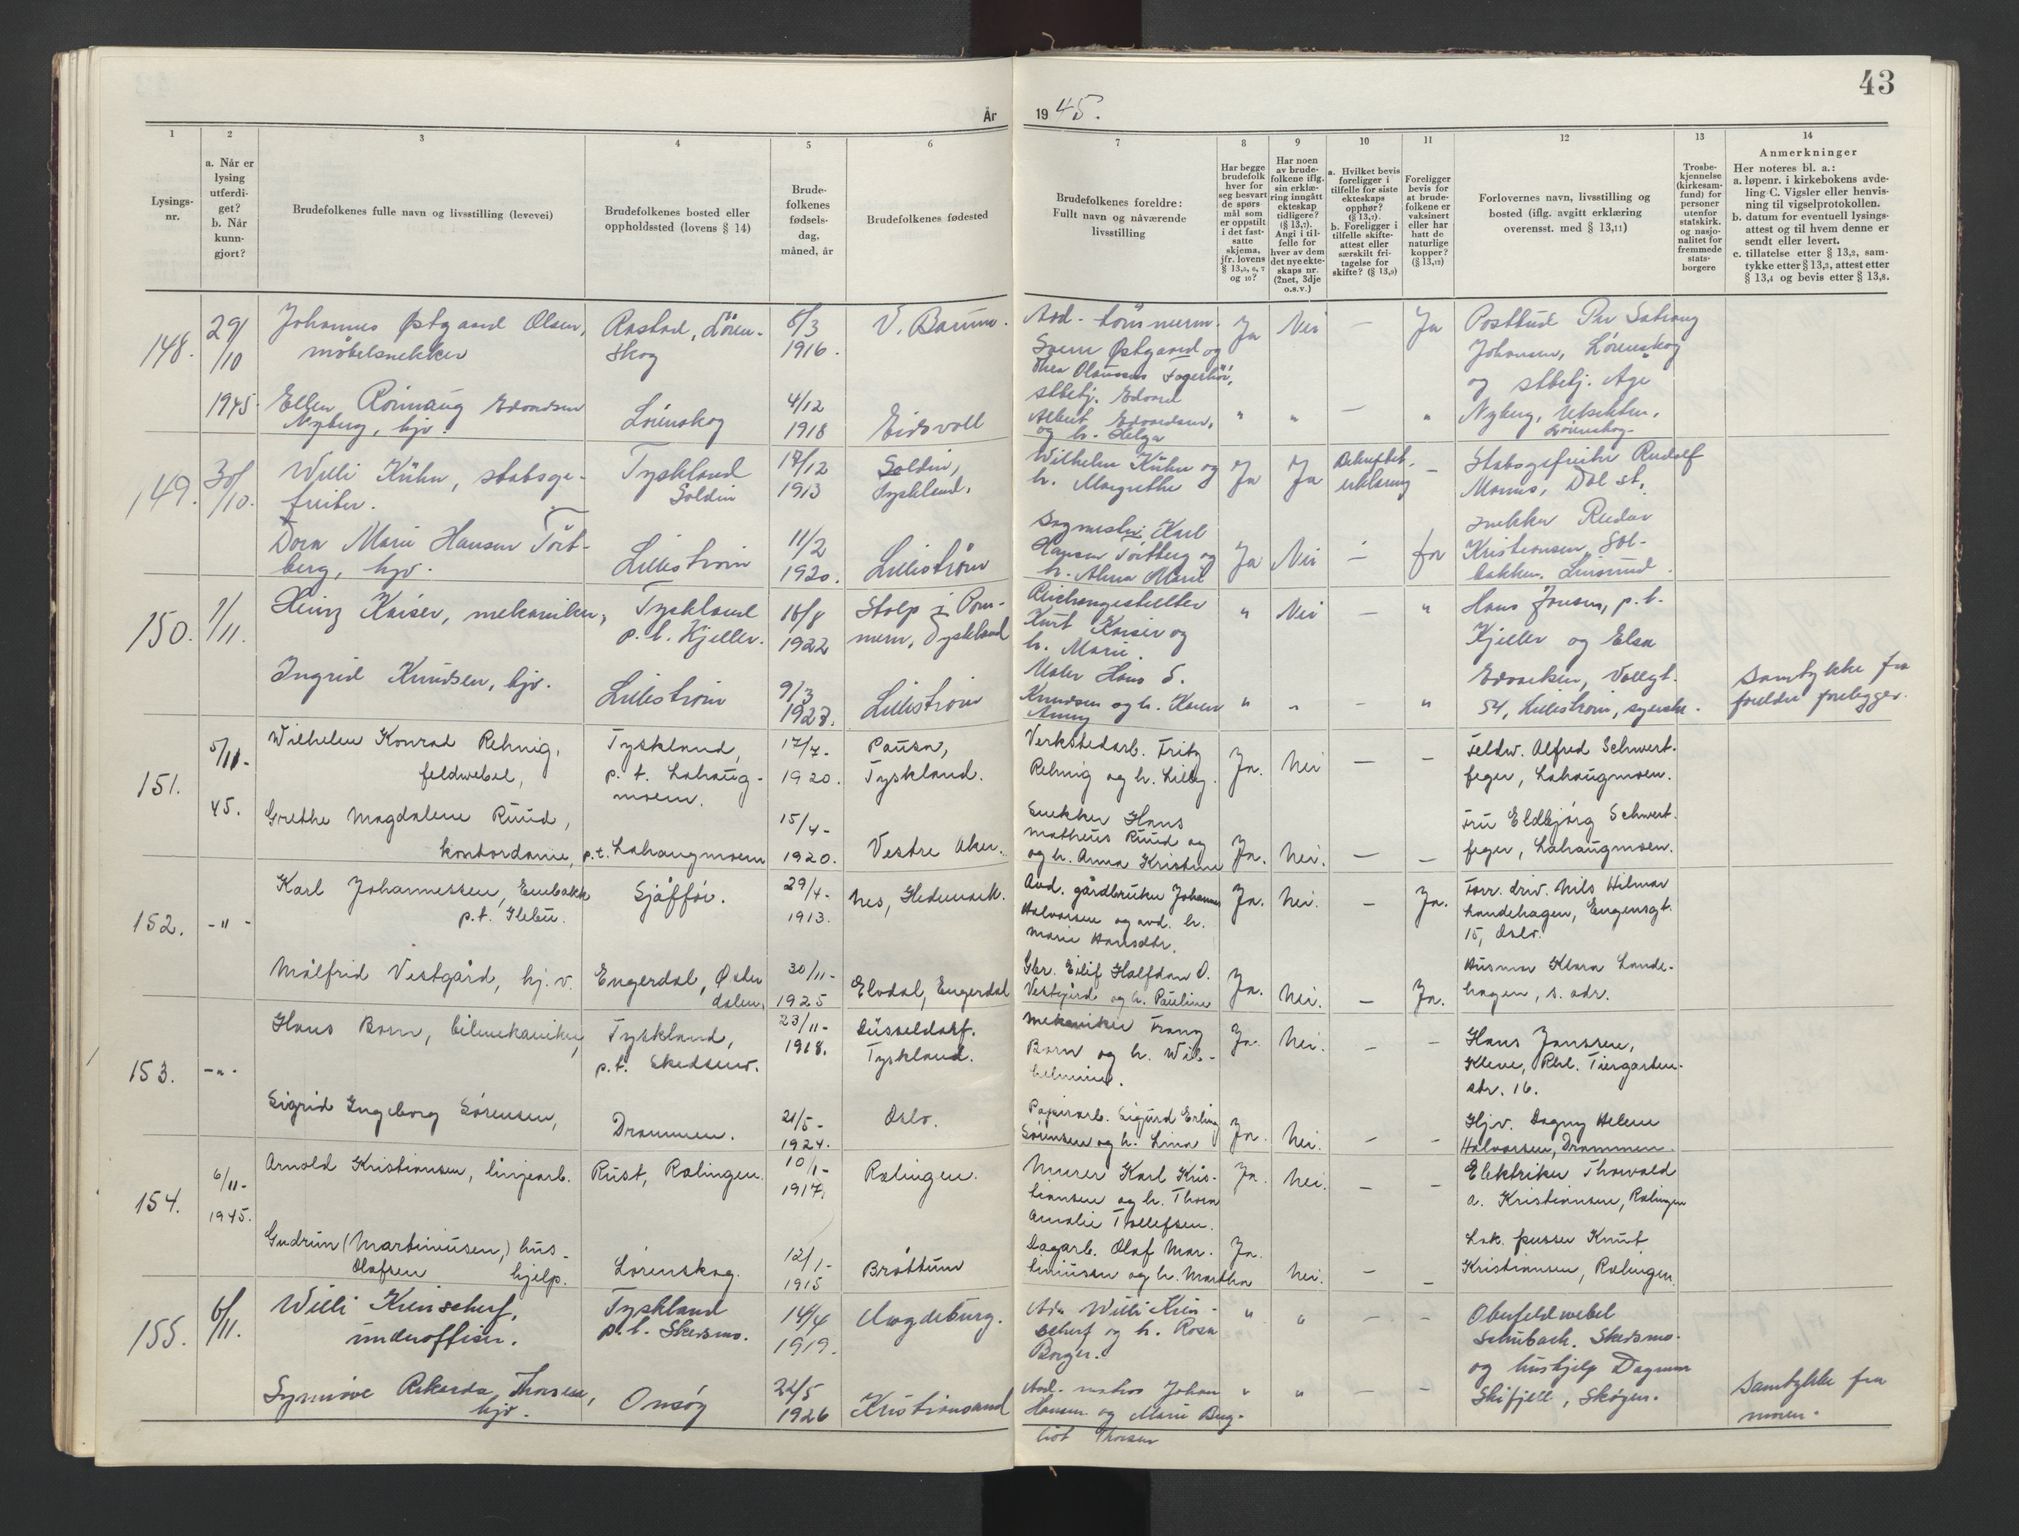 43
År 1945.
1 2 3 4 5 6 7 8 9 10 11 12 13 14
Lysings-
nr.
a. Når er
lysing
utferdi-
get?
b. Når
kunn-
gjort?
Brudefolkenes fulle navn og livsstilling (levevei)
Brudefolkenes bosted eller
oppholdssted (lovens § 14)
Brude-
folkenes
fødsels-
dag,
måned, år
Brudefolkenes fødested
Brudefolkenes foreldre:
Fullt navn og nåværende
livsstilling
Har begge
brudefolk
hver for
seg besvart
de spørs
mål som
er oppstilt
i det fast-
satte
skjema,
jfr. lovens
§ 13,5, 6, 7
og 10?
Har noen
av brude-
folkene iflg.
sin erklæ-
ring inngått
ekteskap
tidligere?
(§ 13,7).
Angi i til-
felle for
hver av dem
det nye ekte-
skaps nr.
(2net, 3dje
o.s.v.)
a. Hvilket bevis
foreligger i
tilfelle for siste
ekteskaps
opphør?
(§ 13,7).
b. Foreligger i
tilfelle skifte-
attest eller
særskilt fri-
tagelse for
skifte? (§ 13,9)
Foreligger
bevis for
at brude-
folkene er
vaksinert
eller har
hatt de
naturlige
kopper?
(§ 13,12)
Forlovernes navn, livsstilling og
bosted (iflg. avgitt erklæring
overensst. med § 13,11)
Trosbe-
kjennelse
(kirkesam-
fund) for
personer
utenfor
statskirk.
og nasjo-
nalitet for
fremmede
stats-
borgere
Anmerkninger
Her noteres bl. a.:
a. løpenr. i kirkebokens avde-
ling C. Vigsler eller henvis-
ning til vigselprotokollen.
b. datum for eventuell lysings-
attest og til hvem denne er
sendt eller levert.
c. tillatelse etter § 13,2, sam-
tykke etter § 13,3, attest etter
§ 13,4 og bevis etter § 13,8.
148.
29/
/10
1945.
Johannes Østgaard Olsen,
møbelsnekker
Rastad, Lören-
skog
6/3
1916.
V. Bærum.
Arb. tömmerm.
Svein Østgaard og
Thea Olaussen Fagerhöi,
Ja Nei — Ja
Postbud Per
Johansen, Lørenskog
og stbetj. Age
Nyberg, Utsikten,
Lørenskog.
Ellen Rönnaug Edvardsen
Nyberg, hjv.
Lörenskog
4/12
1918
Eidsvoll
stbetj. Edvard
Albert Edvardsen,
og h. Helga
" " — "
149.
30/
/10.
Willi Kühn, stabsge-
freiter.
Tyskland
Soldin
17/12
1913
Soldin,
Tyskland.
Wilhelm Kühn og
h. Margrethe
Ja Ja
erklæring —
Stabsgefreiter Rudolf
Manns, Dal st.
snekker Reidar
Kristiansen, Sol-
bakken,
Dora Marie Hansen Tört-
berg, hjv.
Lilleström
11/2
1920.
Lilleström
Sagmester Karl
Hansen Törtberg og
h. Alma Marie
Ja Nei — for
150.
1/
/11.
Heinz Kaiser, mekaniker,
Tyskland
p.t. Kjeller.
18/8
1922
Stolp i Pom-
mern, Tyskland
Kurt Kaiser og
h. Marie.
" Nei — "
Hans Jensen, p.t.
Kjeller og Elsa
Edvardsen, Vollgt.
54, Lilleström, syerske.
Ingrid Knudsen, hjv.
Lilleström
9/3
1927.
Lilleström
Maler Hans S.
Knudsen og h. Karen
Anny
" " — "
Samtykke fra
foreldre foreligger.
151.
5/11-
45.
Wilhelm Konrad Rehnig,
feldwebel,
Tyskland,
p.t. Lahaug-
moen.
17/7-
1920.
Pausa,
Tyskland.
Verkstedarb. Fritz
Rehnig og h. Lilly.
Ja. Nei — —
Feldw. Alfred Schwert-
feger, Lahaugmoen.
Grethe Magdalene Ruud,
kontordame,
p.t. Lahaugmoen
15/4-
1920.
Vestre Aker.
Snekker Hans
Matheus Ruud og
og h. Anna Kristine
Ja. Nei. — —
Fru Eldbjørg Schwert-
feger, Lahaugmoen.
152.
-"-
Karl Johannessen, Enebakk
p.t. Elelu.
Sjåfför.
29/4-
1913.
Nes, Hedemark.
Avd. gårdbruker Johannes
Halvorsen og avd. h.
Marie Hansdtr.
Ja. Nei. — Ja.
Forr. driv. Nils Hilmar
Landehagen, Eugensgt.
15, Oslo.
Målfrid Vestgård, hj.v.
Engerdal, Øster
dalen.
30/11-
1925
Elvdal, Engerdal
Gbr. Eilif Halfdan O.
Vestgård og h. Pauline
Ja. Nei. — Ja.
Husmor Klara Lande-
hagen, s. adr.
153.
-"-
Hans Born, bilmekaniker,
Tyskland,
p.t. Skedsmo.
23/11-
1918.
Düsseldorf.
Tyskland.
Mekaniker Franz
Born og h. Wil-
helmine.
Ja. Nei. — —
Hans Janssen,
Kleve, Rhl. Tiergarten-
str. 16.
Sigrid Ingeborg Sörensen,
Drammen.
21/5-
1924.
Oslo.
Papirarb. Sigurd Erling
Sörensen og h. Lina
Ja. Nei. — —
Hj.v. Dagny Helene
Halvorsen, Drammen.
154.
6/11-
1945.
Arnold Kristiansen, linjearb.
Rust, Rælingen.
10/1-
1917.
Rælingen.
Murer Karl Kris-
tiansen og h. Thora
Amalie Tollefsen.
Ja. Nei. — —
Elektriker Thorvald
A. Kristiansen, Rælingen
Gudrun (Martiniusen,) hus-
Olafsen hjelp.
Lørenskog.
12/1-
1915
Brøttum
Dagarb. Olaf Mar-
tiniussen og h. Martha
Ja. Nei. — —
Lok. pusser Knut
Kristiansen, Rælingen.
155.
6/
/11.
Willi Keinscherf,
underoffiser.
Tyskland
p.t. Skedsmo.
14/4
1919.
Magdeburg.
Willi Kein-
scherf og h. Rosa
Borger.
" " — —
Oberfeldwebel
Schubach. Skedsmo.
og hushjelp Dagmar
Skifjell, Skøyen.
Synnöve Rikarda Thorsen,
hjv.
Onsöy
22/5
1926
Kristiansand
Avd. matros Johan
Hansen og Marie Berg-
liot Thorsen
" " — —
Samtykke fra
moren.